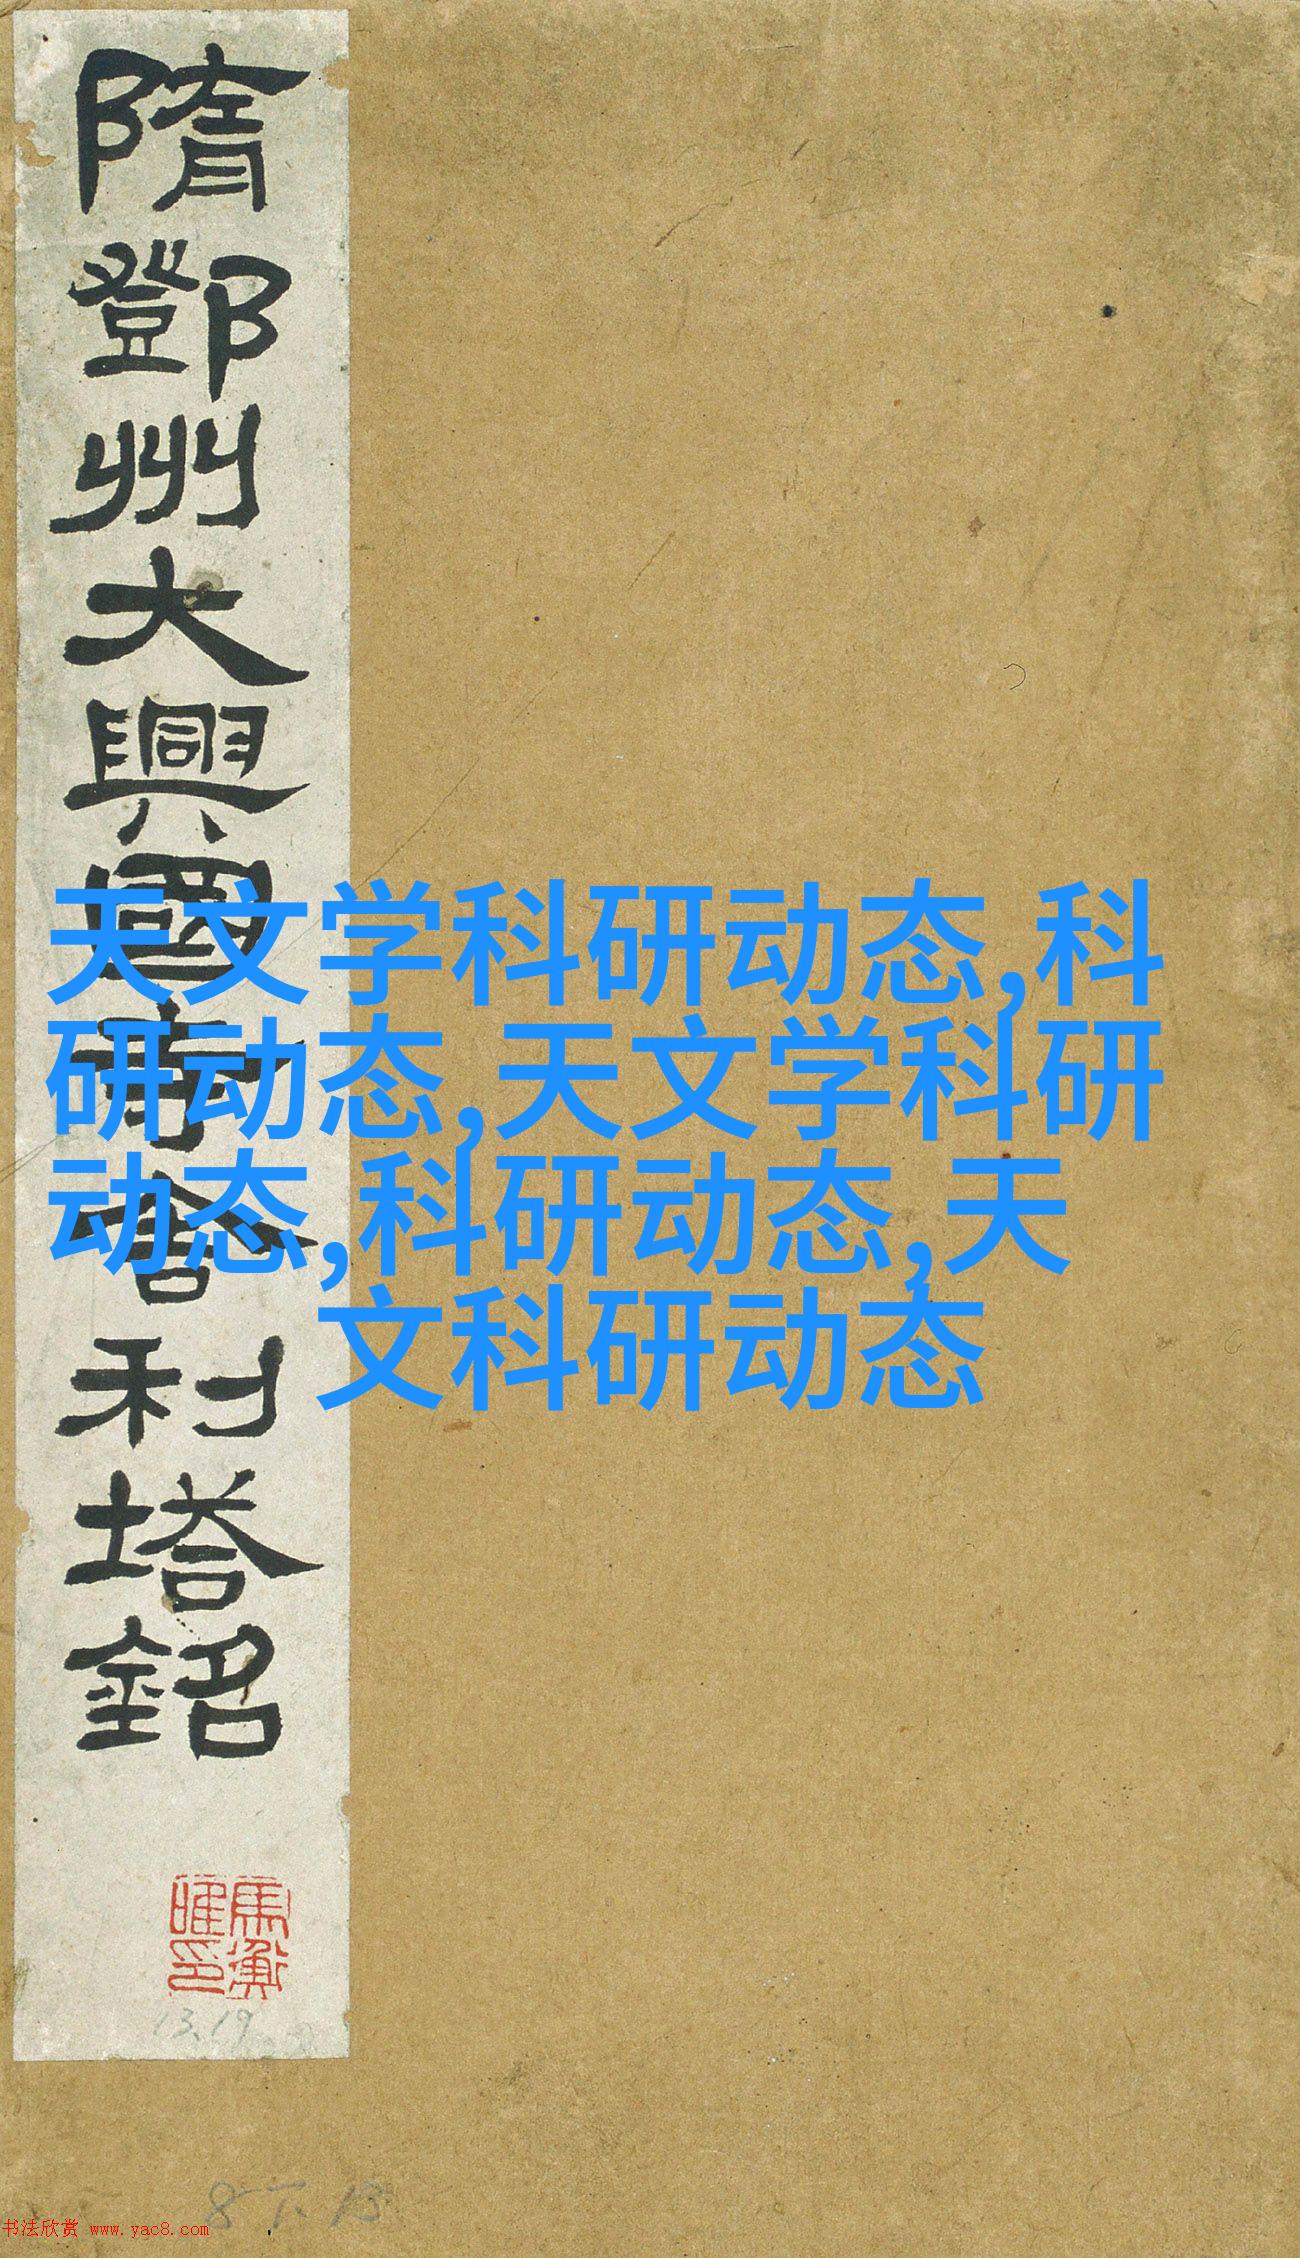 隋鄧州大興國寺舍利塔銘
天文学科研动态,科
研动态,天文学科研
动态,科研动态,天
文科研动态
馬衡
晊印
13.19
8下13
书法欣赏 www.yac8.com